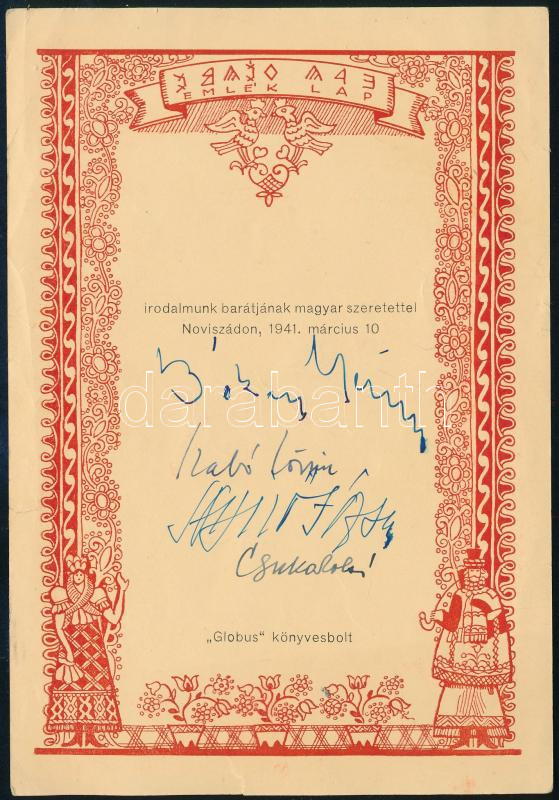 EMLÉK LAP
irodalmunk barátjának magyar szeretettel
Noviszádon, 1941. március 10
darabanth
Szabó Lőrinc
Csuka Zoltán
„Globus“ könyvesbolt